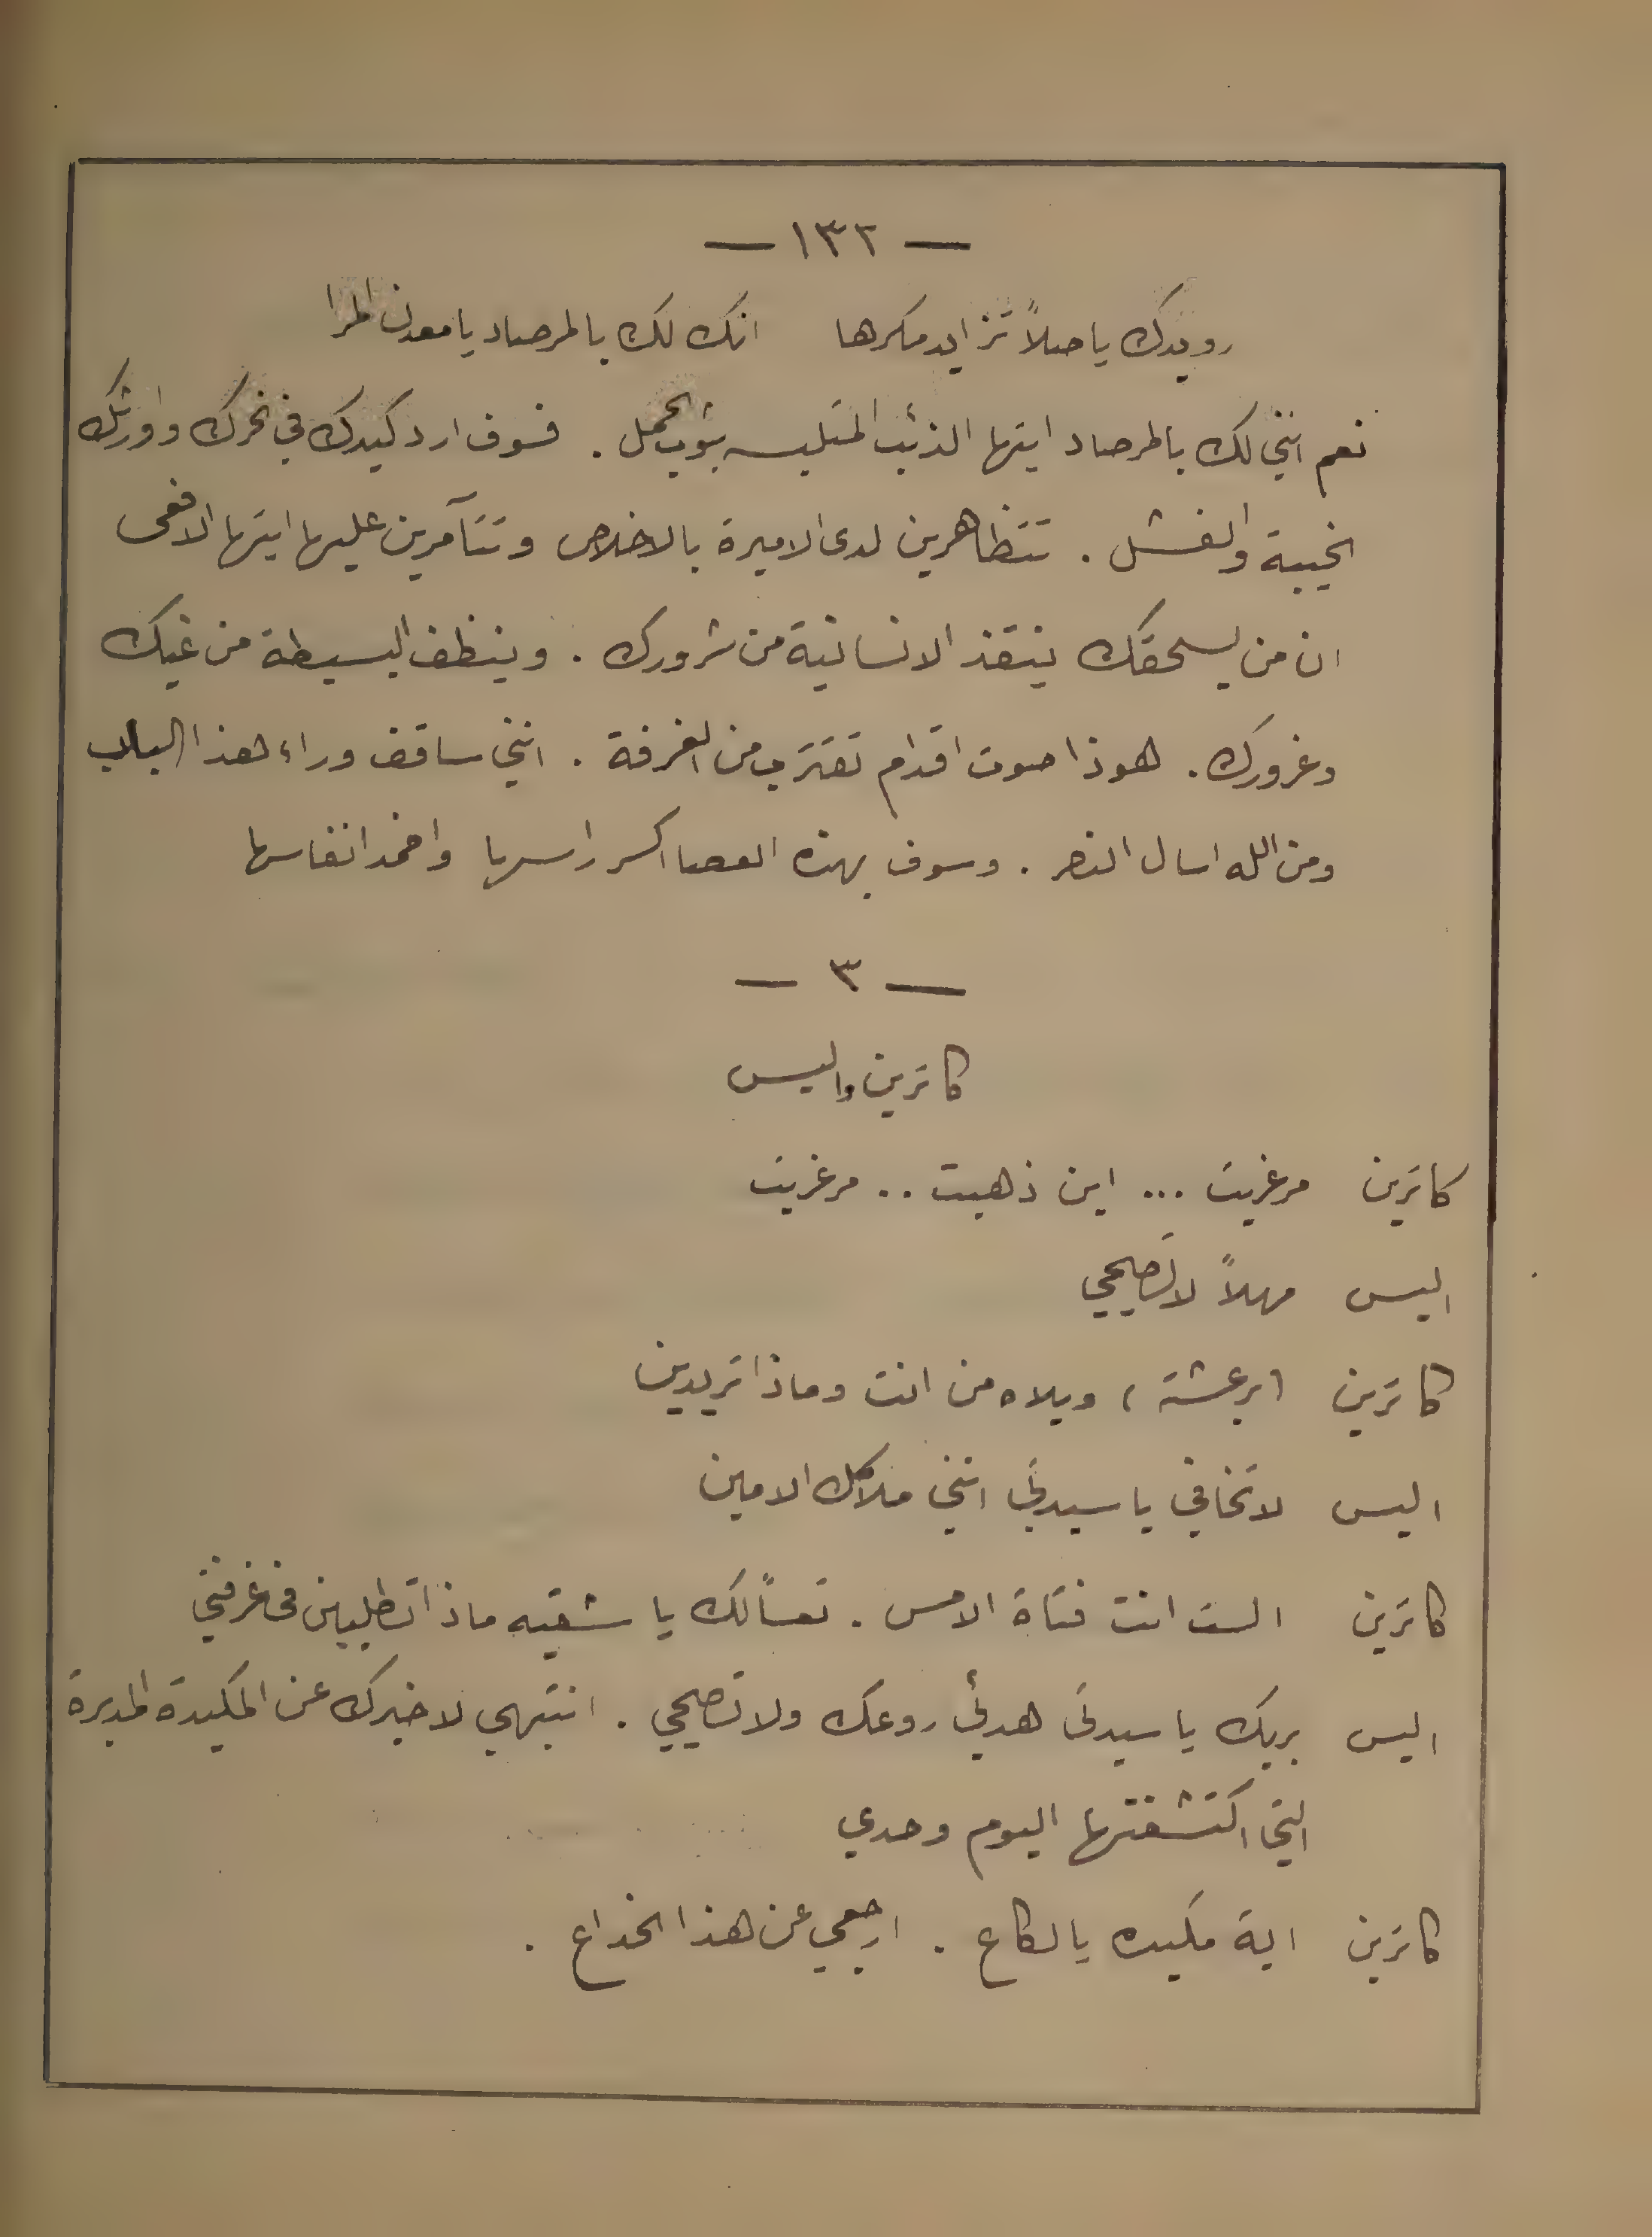 — ١٣٢ —
رويدك يا صلاً تزايد مكرها انك لك بالمرصاد يا معدن المرا
نعم انني لك بالمرصاد ايتها الذئب المتلبسه بثوب الحمل . فسوف ارد كيدك في نحرك واورثك
الخيبة والفشل . تتظاهرين لدى الاميرة بالاخلاص وتتآمرين عليها ايتها الافعى
ان من يسحقك ينقذ الانسانية من شرورك . وينظف البسيطة من غيك
وغرورك . هوذا صوت اقدام تقترب من الغرفة . انني ساقف وراء هذا الباب
ومن الله اسال النصر . وسوف بهذه العصا اكسر راسها واخمد انفاسها
— ٣ —
كاترين واليس
كاترين مرغريت ... اين ذهبت .. مرغريت
اليس مهلاً لا تصيحي
كاترين (برعشة) ويلاه من انت وماذا تريدين
اليس لا تخافي يا سيدتي انني ملاكك الامين
كاترين الست انت فتاة الامس . تعساً لك يا شقيه ماذا تطلبين في غرفتي
اليس بربك يا سيدتي هدئي روعك ولا تصيحي . انتبهي لاخبرك عن المكيدة المدبرة
التي اكتشفتها اليوم وحدي
كاترين اية مكيده يا لكاع . ارجعي عن هذا الخداع .